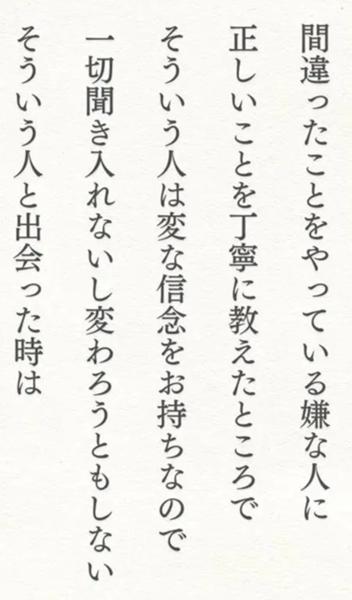 間違ったことをやっている嫌な人に
正しいことを丁寧に教えたところで
そういう人は変な信念をお持ちなので
一切聞き入れないし変わろうともしない
そういう人と出会った時は